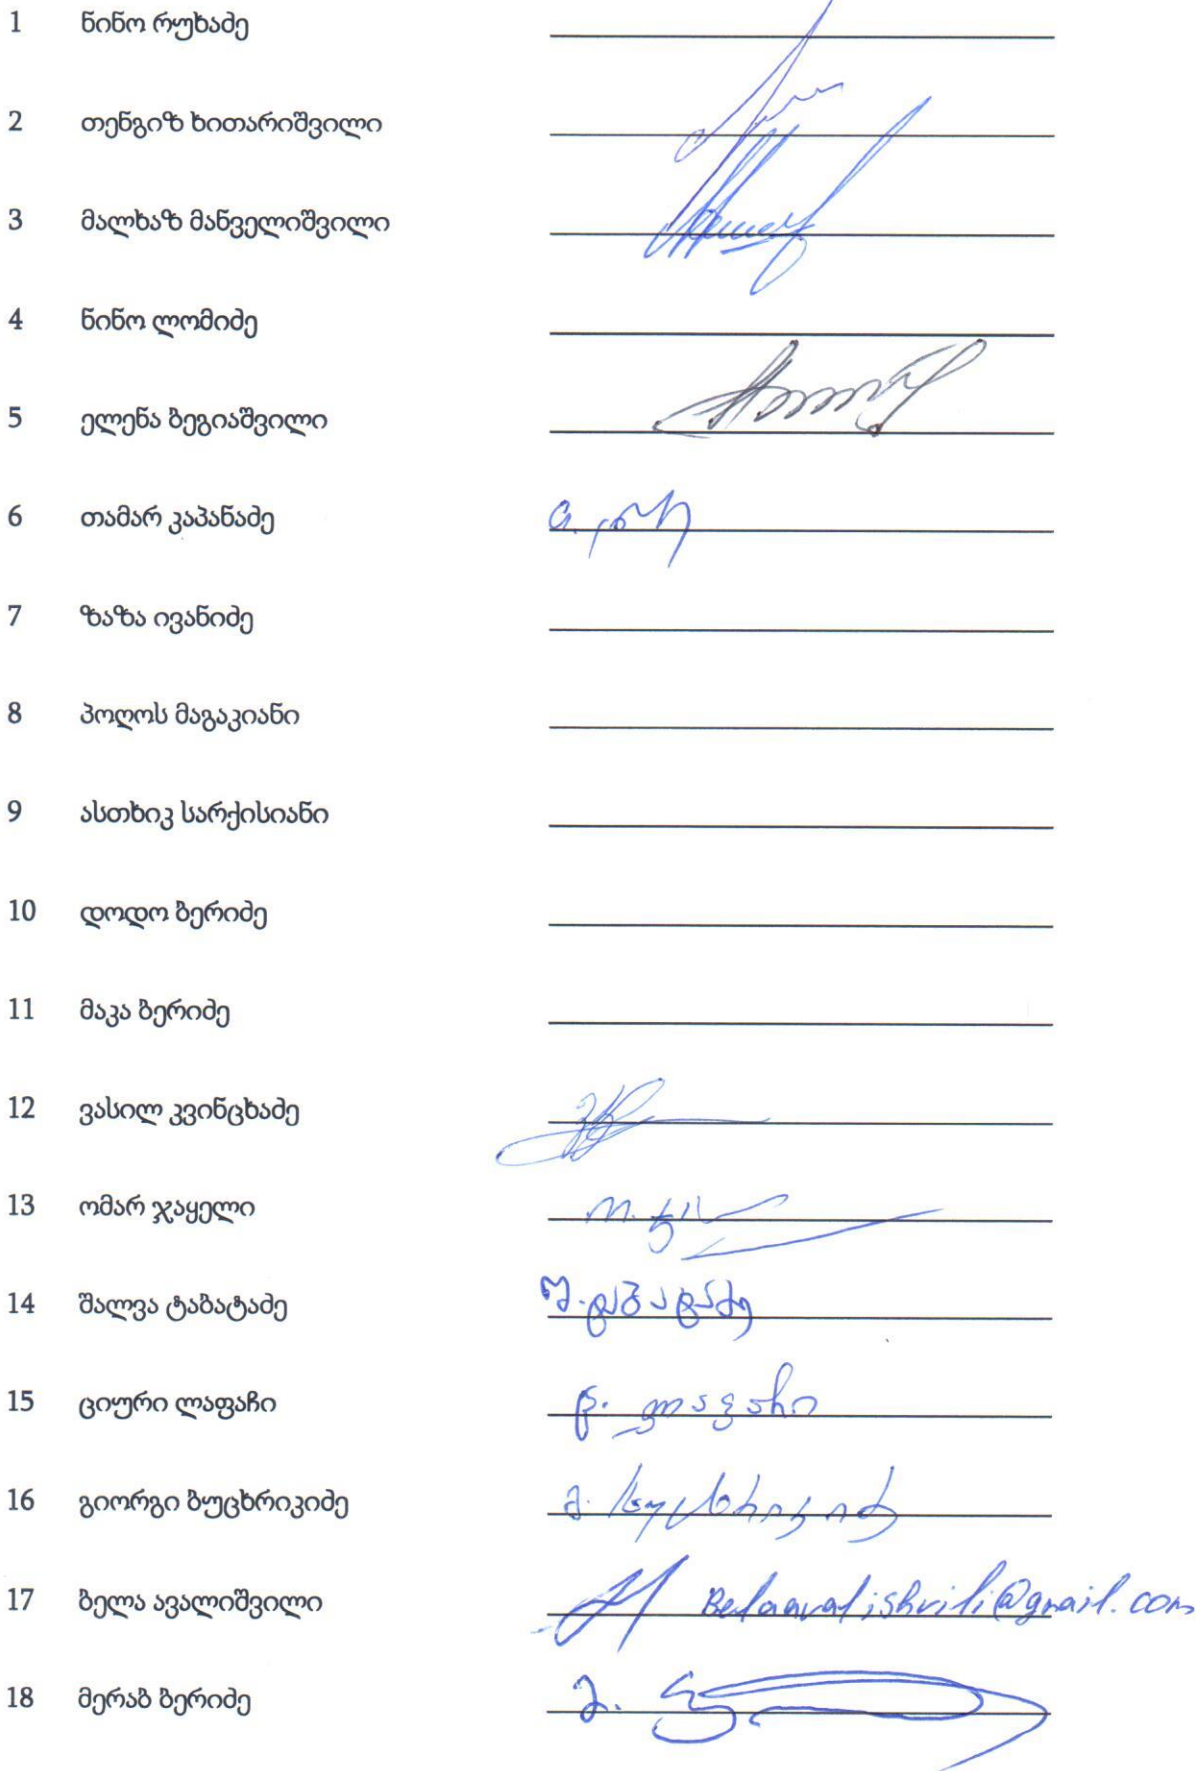 1 ნინო რუხაძე
2 თენგიზ ხითარიშვილი
3 მალხაზ მანველიშვილი
4 ნინო ლომიძე
5 ელენა ბეგიაშვილი
6 თამარ კაპანაძე
7 ზაზა ივანიძე
8 პოღოს მაგაკიანი
9 ასთხიკ სარქისიანი
10 დოდო ბერიძე
11 მაკა ბერიძე
12 ვასილ კვინცხაძე
13 ომარ ჯაყელი
14 შალვა ტაბატაძე შ. ტაბატაძე
15 ციური ლაფაჩი ც. ლაფაჩი
16 გიორგი ბუცხრიკიძე გ. ბუცხრიკიძე
17 ბელა ავალიშვილი Belaavalishvili@gmail.com
18 მერაბ ბერიძე მ.